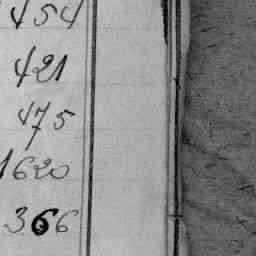 454
421
475
1620
366